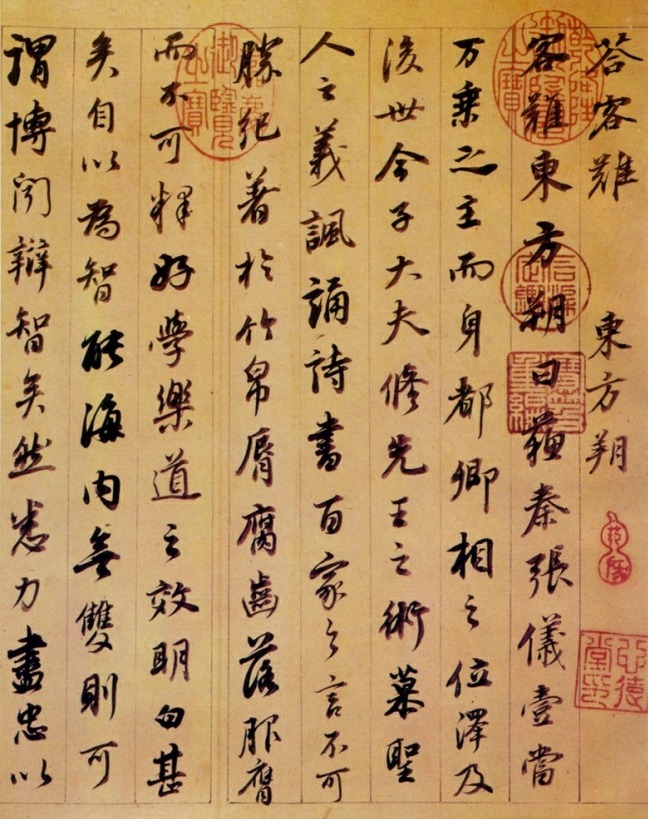 答客難　東方朔
客難東方朔曰蘇秦張儀壹當
万乗之主而身都卿相之位澤及
後世今子大夫修先王之術慕聖
人之義諷誦詩書百家之言不可
勝紀著於竹帛脣腐齒落服膺
而不可釋好學樂道之效明白甚
矣自以為智能海内無雙則可
謂博聞辯智矣然悉力盡忠以